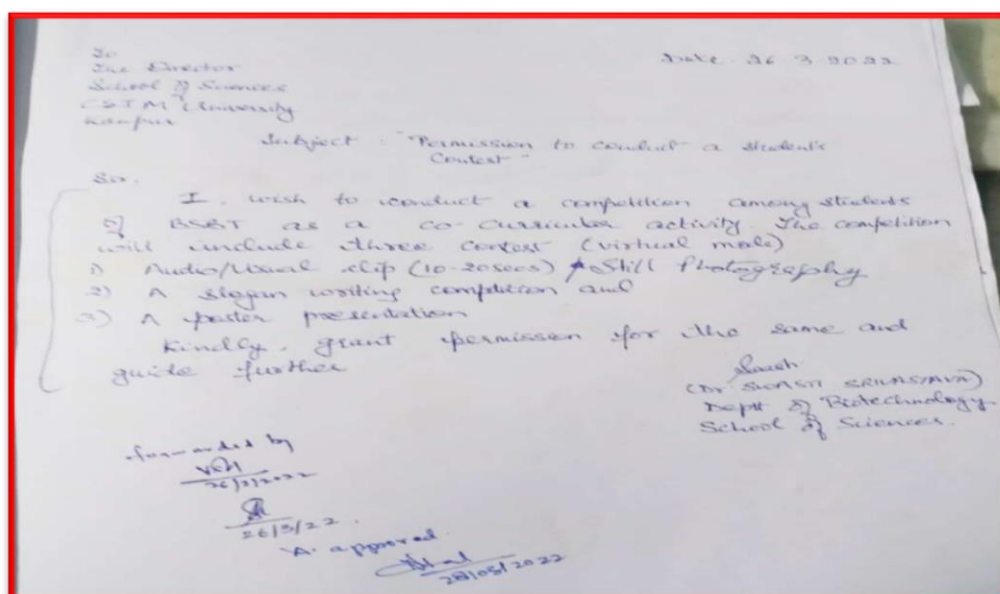 To
The Director
School of Sciences
CSJM University
Kanpur
Date 26.3.2022
Subject : "Permission to conduct a student's
Contest"
Sir.
I wish to conduct a competition among students
of BSBT as a co-curricular activity. The competition
will include three contest (virtual mode)
1) Audio/Visual clip (10-20secs) / Still Photography
2) A slogan writing competition and
3) A poster presentation
Kindly, grant permission for the same and
guide further
(Dr SWASTI SRIVASTAVA)
Deptt of Biotechnology
School of Sciences.
forwarded by
26/3/2022
26/3/22.
approved
28/03/2022